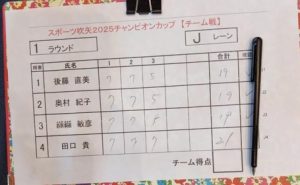 スポーツ吹矢2025チャンピオンカップ【チーム戦】
1 ラウンド J レーン
氏名 1 2 3 合計
1 後藤 直美 7 7 5 19
2 奥村 紀子 7 7 5 19
3 敏彦 7 7 5 19
4 田口 貴 7 7 21
チーム得点